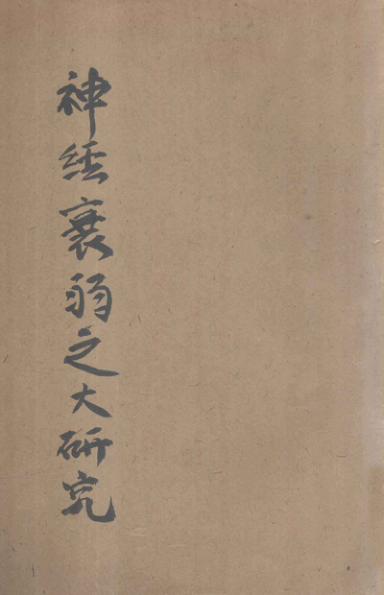 神經衰弱之大研究